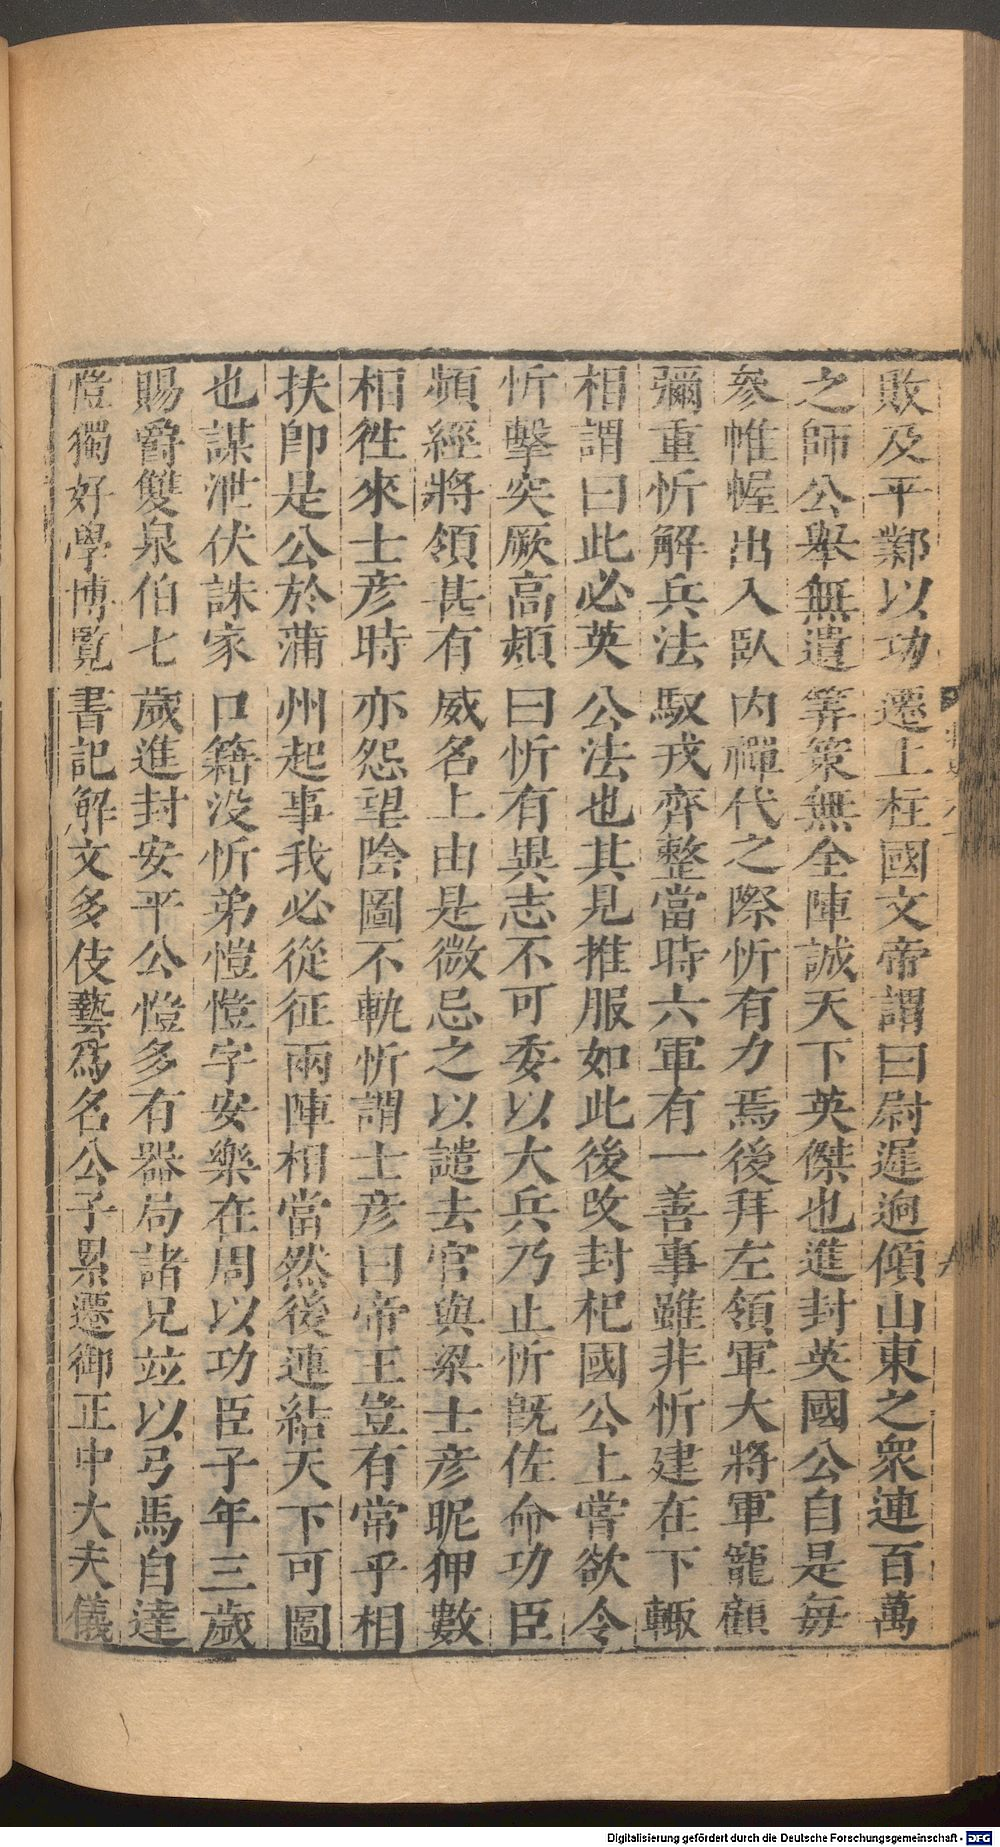 敗及平鄴以功遷上柱國文帝謂曰尉遲迥傾山東之衆連百萬
之師公舉無遺筭策無全陣誠天下英傑也進封英國公自是每
參帷幄出入臥內禪代之際忻有力焉後拜左領軍大將軍寵顧
彌重忻解兵法馭戎齊整當時六軍有一善事雖非忻建在下輙
相謂曰此必英公法也其見推服如此後改封杞國公上嘗欲令
忻擊突厥高熲曰忻有異志不可委以大兵乃止忻旣佐命功臣
頻經將領甚有威名上由是微忌之以譴去官與梁士彥昵狎數
相徃來士彥時亦怨望陰圖不軌忻謂士彥曰帝王豈有常乎相
扶卽是公於蒲州起事我必從征兩陣相當然後連結天下可圖
也謀泄伏誅家口籍没忻弟愷愷字安樂在周以功臣子年三歲
賜爵雙泉伯七歲進封安平公愷多有器局諸兄竝以弓馬自達
愷獨好學博覽書記解文多伎藝爲名公子累遷御正中大夫儀
Digitalisierung gefördert durch die Deutsche Forschungsgemeinschaft - DFG